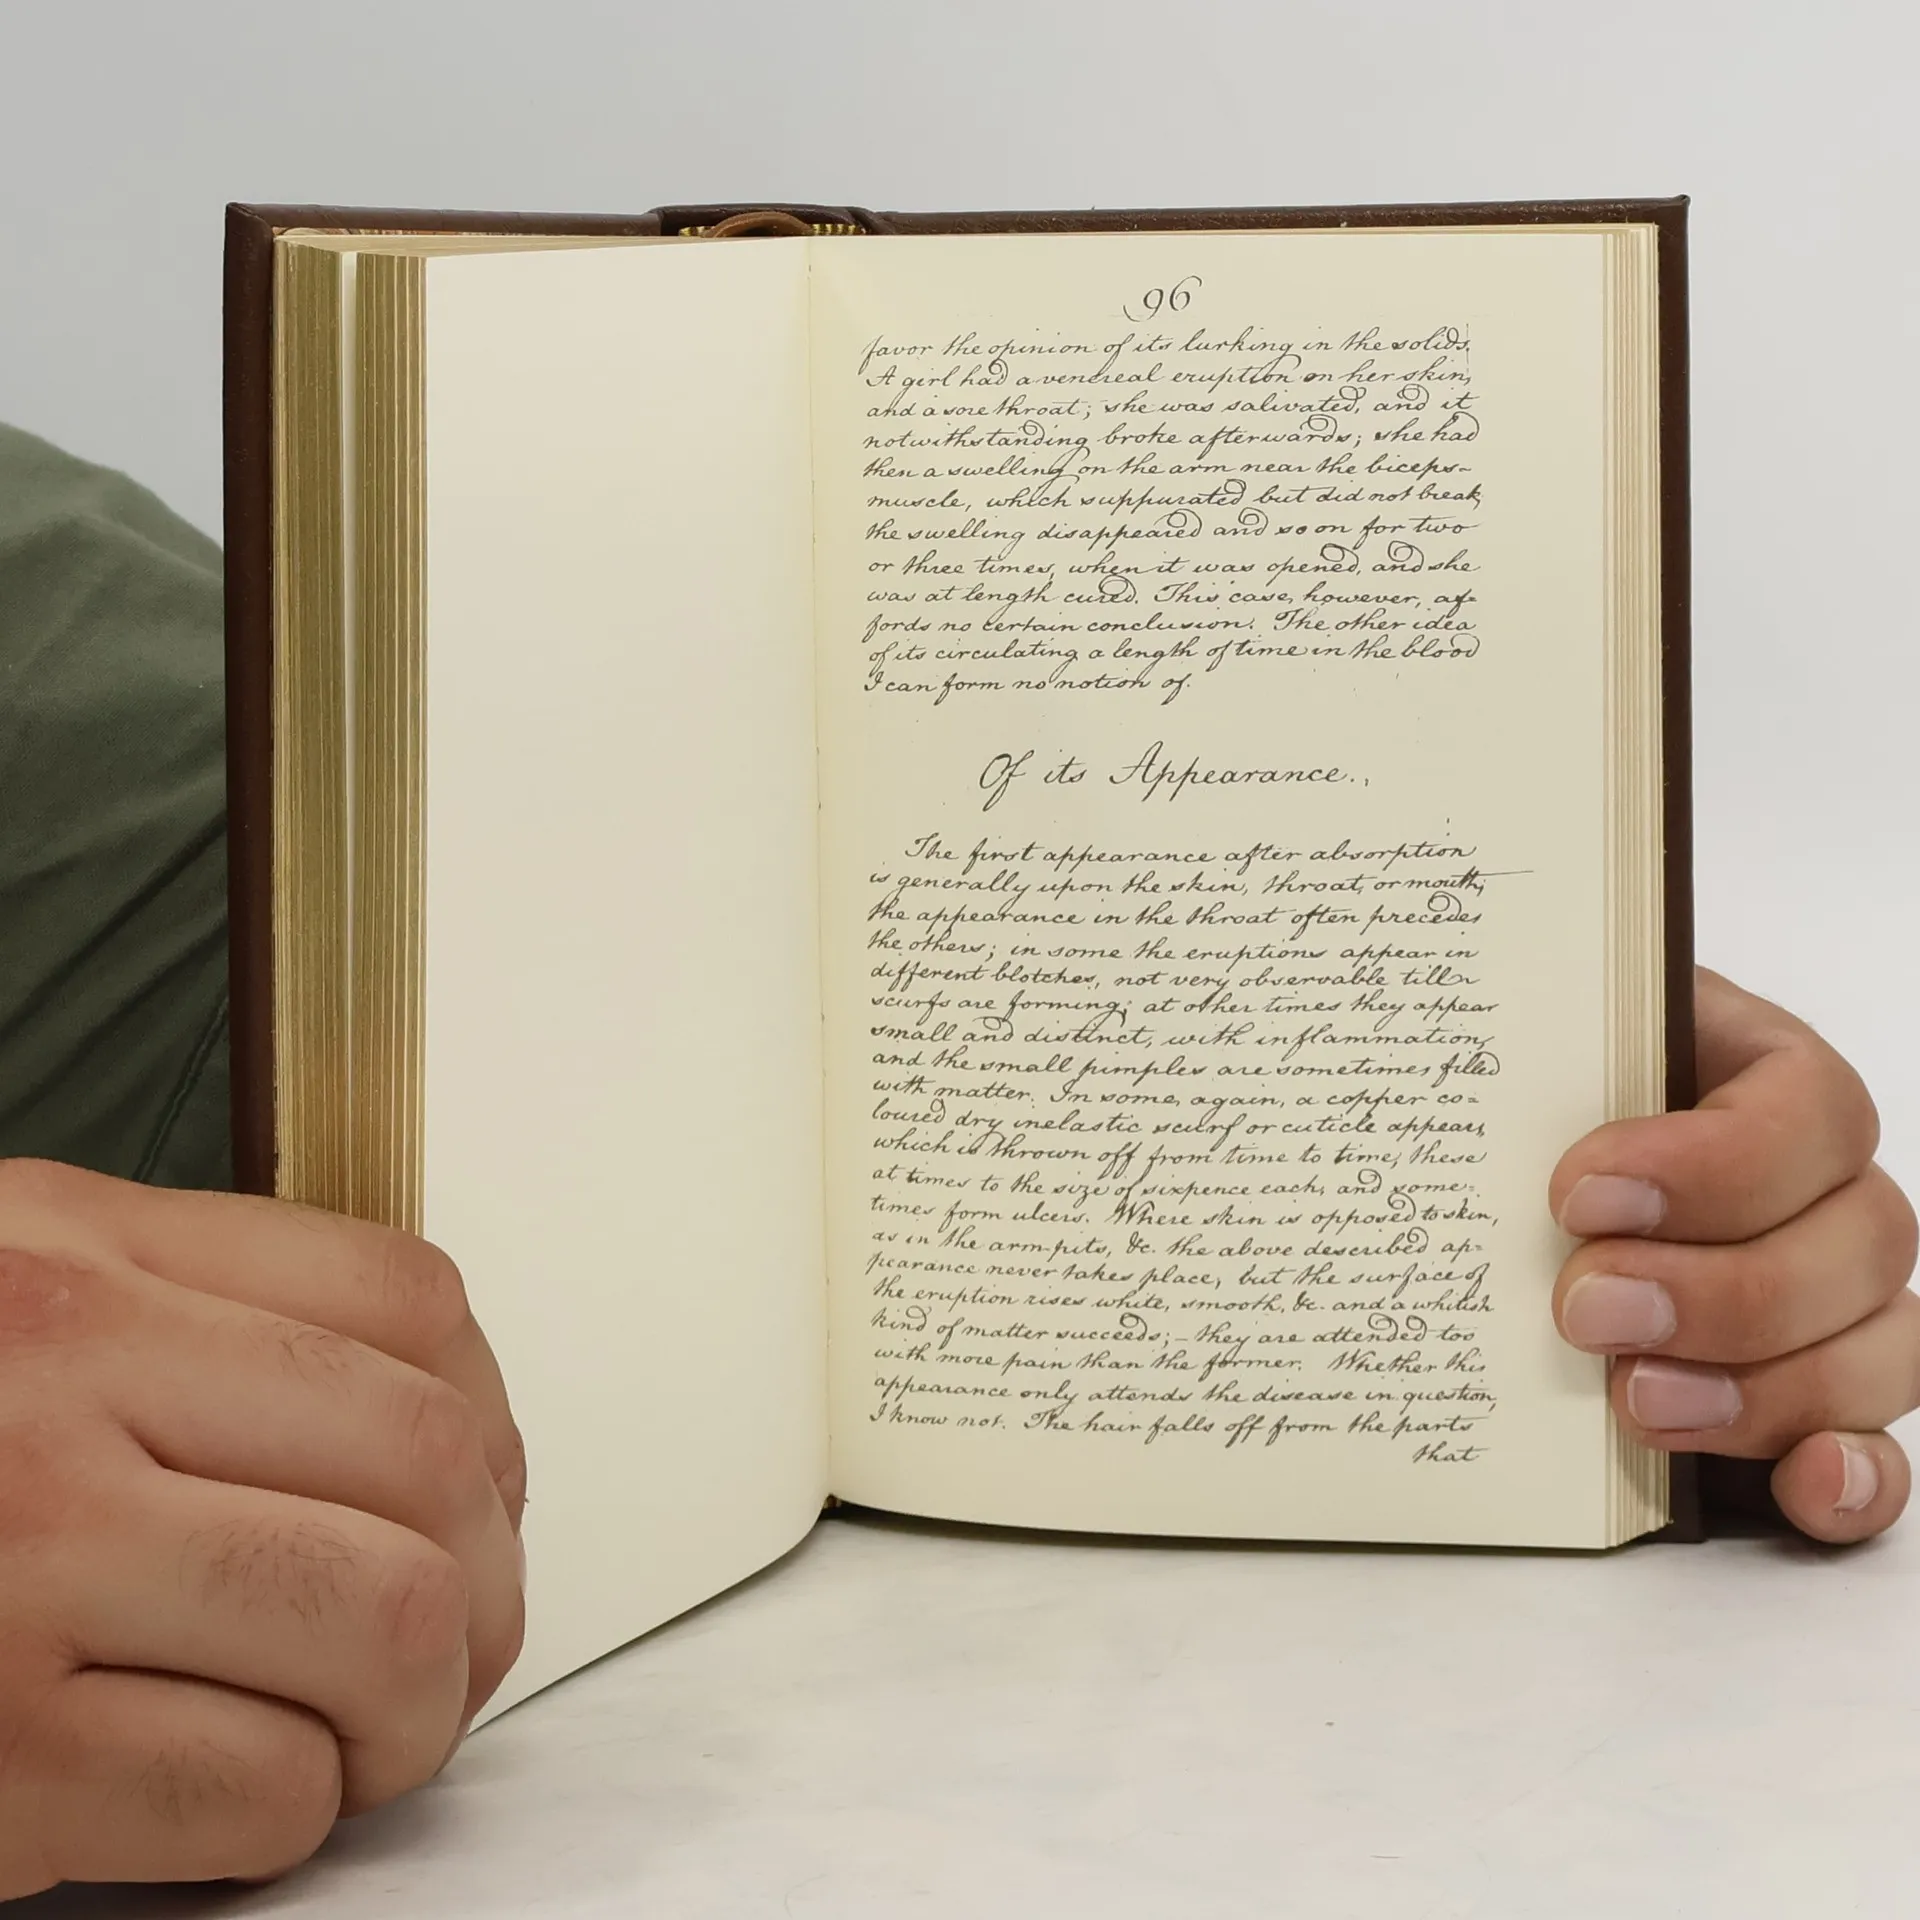 96
favor the opinion of its lurking in the solids.
A girl had a venereal eruption on her skin,
and a sore throat; she was salivated, and it
notwithstanding broke afterwards; she had
then a swelling on the arm near the biceps-
muscle, which suppurated but did not break,
the swelling disappeared and so on for two
or three times, when it was opened, and she
was at length cured. This case, however, af=
fords no certain conclusion. The other idea
of its circulating a length of time in the blood
I can form no notion of.
Of its Appearance.
The first appearance after absorption
is generally upon the skin, throat, or mouth;
the appearance in the throat often precedes
the others; in some the eruptions appear in
different blotches, not very observable till
scurfs are forming; at other times they appear
small and distinct, with inflammation,
and the small pimples are sometimes filled
with matter. In some, again, a copper co=
loured dry inelastic scurf or cuticle appears,
which is thrown off from time to time, these
at times to the size of sixpence each, and some=
times form ulcers. Where skin is opposed to skin,
as in the arm-pits, &c. the above described ap=
pearance never takes place, but the surface of
the eruption rises white, smooth, &c. and a whitish
kind of matter succeeds; - they are attended too
with more pain than the former. Whether this
appearance only attends the disease in question,
I know not. The hair falls off from the parts
that